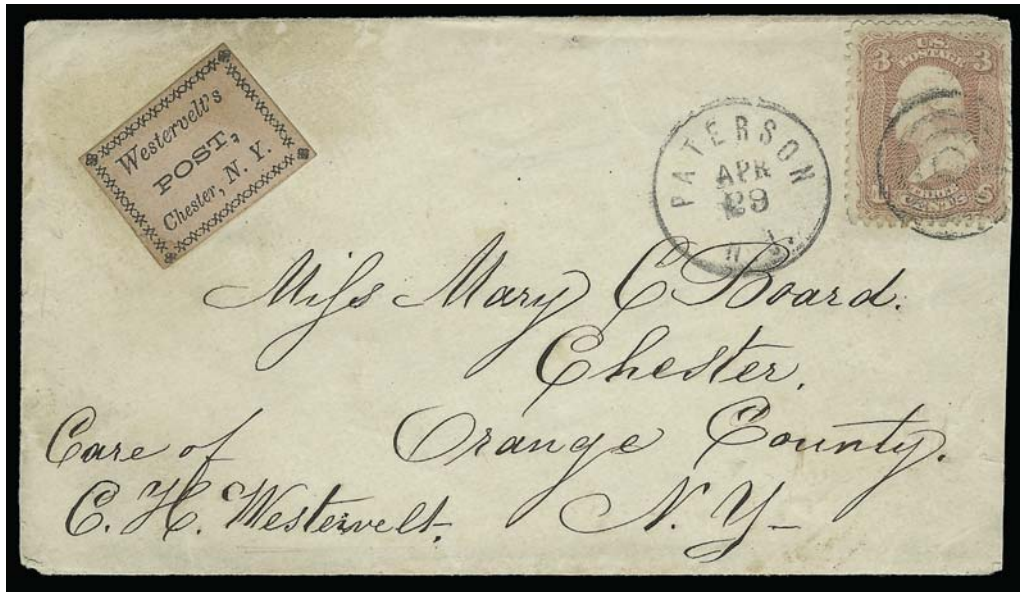 Westervelt's
POST,
Chester, N. Y.
PATERSON
APR
29
N. J.
3 U.S. 3
POSTAGE
THREE
CENTS
Miss Mary C Board.
Chester.
Care of Orange County.
C. H. Westervelt. N. Y-